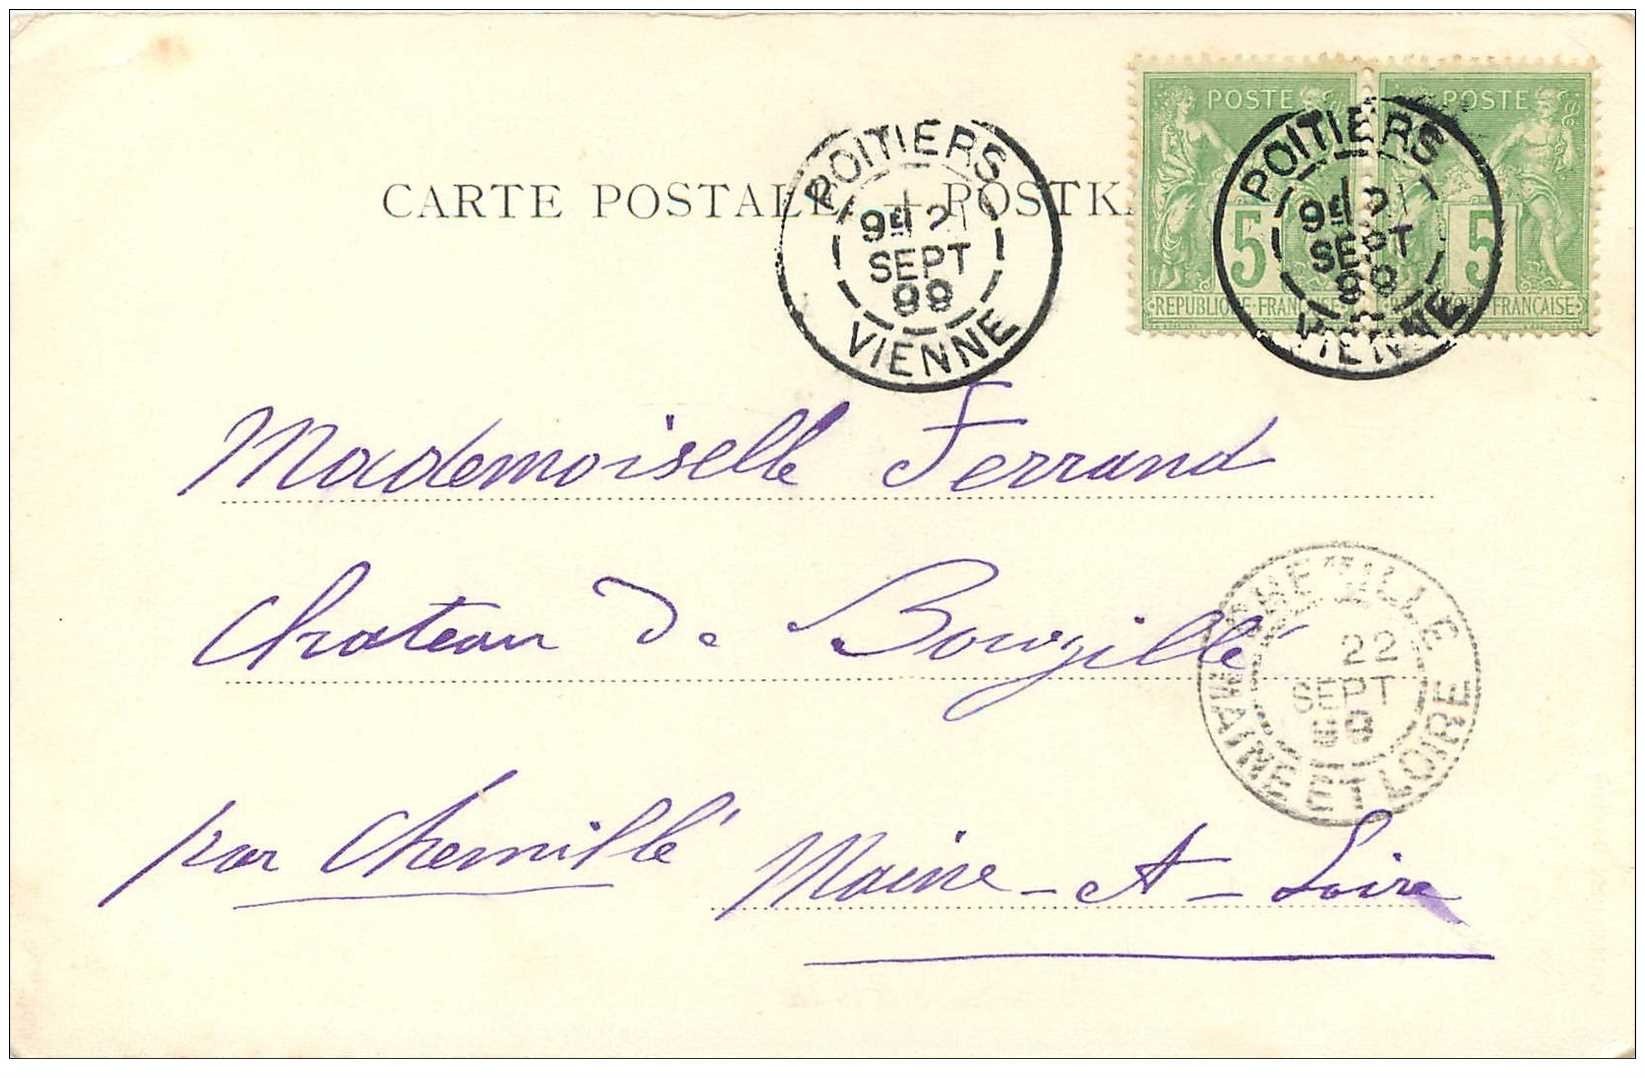 CARTE POSTALE + POSTKA
POSTE POSTE
5 5
REPUBLIQUE FRANCAISE FRANCAISE
POITIERS
21
SEPT
99
VIENNE
POITIERS
21
SEPT
99
VIENNE
Mademoiselle Ferrand
Chateau de Bouzillé
par Chemillé Maine-et-Loire
CHEMILLE
22
SEPT
99
MAINE ET LOIRE